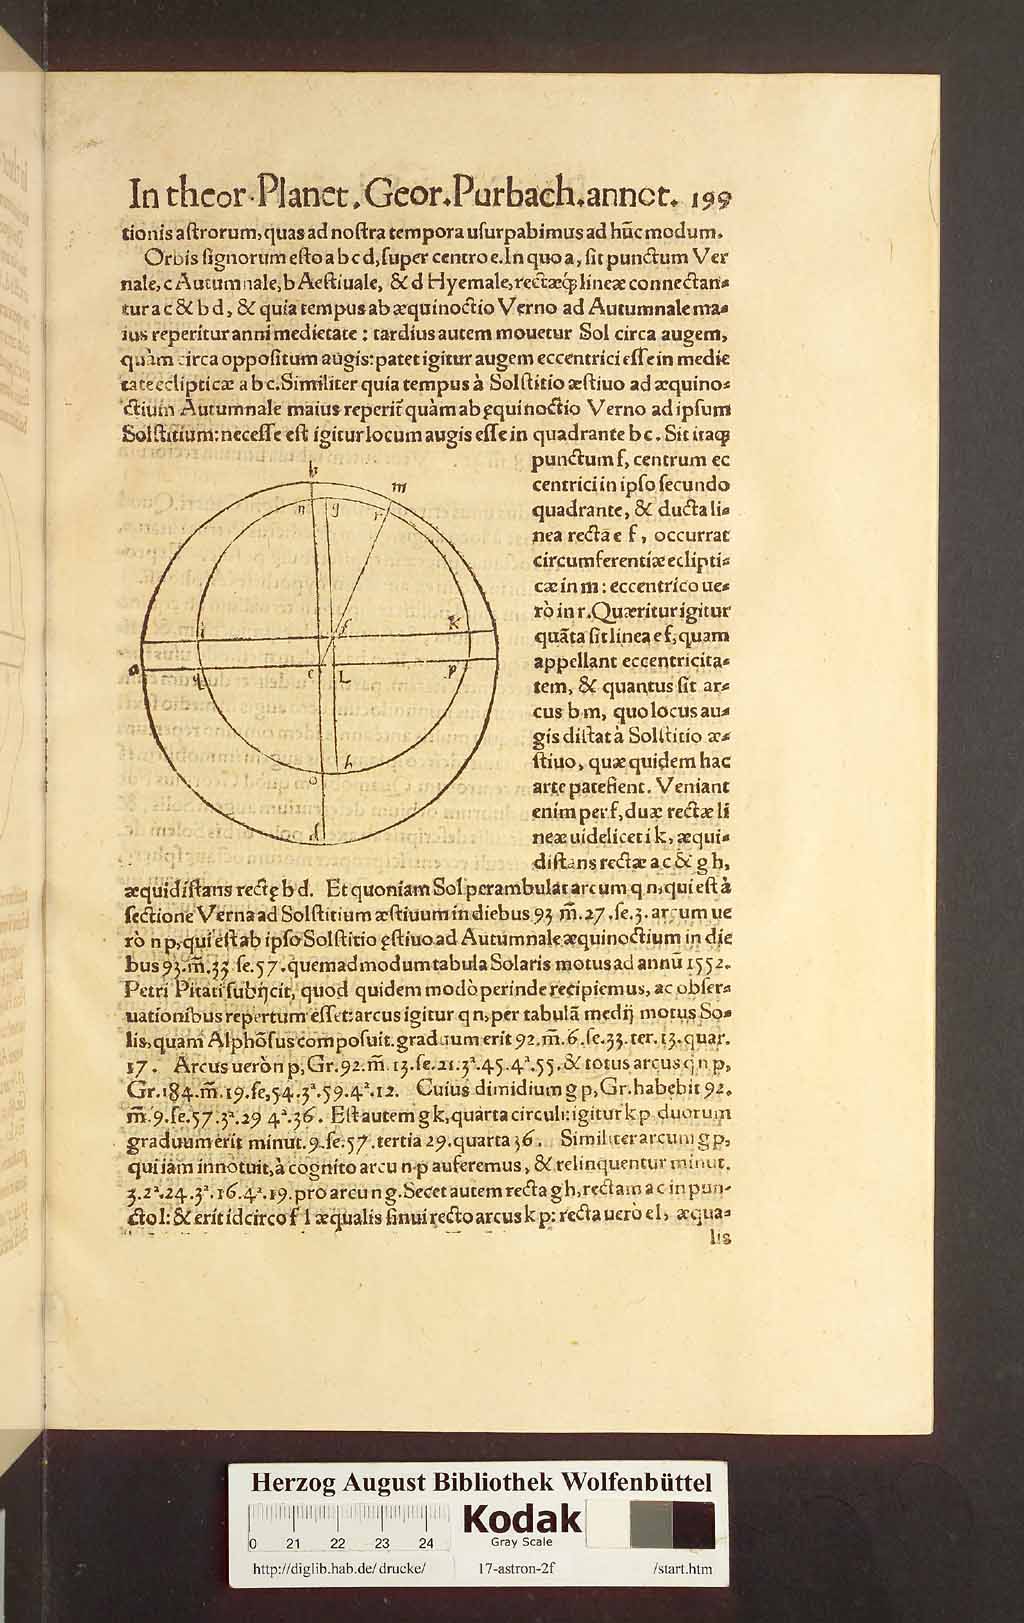 In theor. Planet. Geor. Purbach. annot. 199
tionis astrorum, quas ad nostra tempora usurpabimus ad hũc modum.
Orbis signorum esto a b c d, super centro e. In quo a, sit punctum Ver
nale, c Autumnale, b Aestiuale, & d Hyemale, rectæq́ꝫ lineæ connectan-
tur a c & b d, & quia tempus ab æquinoctio Verno ad Autumnale ma-
ius reperitur anni medietate: tardius autem mouetur Sol circa augem,
quàm circa oppositum augis: patet igitur augem eccentrici esse in medie
tate eclipticæ a b c. Similiter quia tempus à Solstitio æstiuo ad æquino-
ctium Autumnale maius reperit̃ quàm ab ęquinoctio Verno ad ipsum
Solstitium: necesse est igitur locum augis esse in quadrante b c. Sit itaqꝫ
punctum f, centrum ec
centrici in ipso secundo
quadrante, & ducta li-
nea recta e f, occurrat
circumferentiæ eclipti-
cæ in m: eccentrico ue-
rò in r. Quæritur igitur
quãta sit linea e f, quam
appellant eccentricita-
tem, & quantus sit ar-
cus b m, quo locus au-
gis distat à Solstitio æ-
stiuo, quæ quidem hac
arte patefient. Veniant
enim per f, duæ rectæ li
neæ uidelicet i k, æqui-
distans rectæ a c & g h,
b
m
n g r
i f k
a e L p
q
h
o
d
æquidistans rectę b d. Et quoniam Sol perambulat arcum q n, qui est à
sectione Verna ad Solstitium æstiuum in diebus 93 m̃. 27. se. 3. arcum ue
rò n p, qui est ab ipso Solstitio ęstiuo ad Autumnale æquinoctium in die
bus 93. m̃. 33 se. 57. quemadmodum tabula Solaris motus ad annũ 1552.
Petri Pitati subijcit, quod quidem modò perinde recipiemus, ac obser-
uationibus repertum esset: arcus igitur q n, per tabulã medij motus So-
lis, quam Alphõsus composuit. graduum erit 92. m̃. 6. se. 33. ter. 13. quar.
17. Arcus uerò n p, Gr. 92. m̃. 13. se. 21. 3ª. 45. 4ª. 55. & totus arcus q n p,
Gr. 184. m̃. 19. se, 54. 3ª. 59. 4ª. 12. Cuius dimidium g p, Gr. habebit 92.
m̃. 9. se. 57. 3ª. 29 4ª. 36. Est autem g k, quarta circuli: igitur k p duorum
graduum erit minut. 9. se. 57. tertia 29. quarta 36. Similiter arcum g p,
qui iam innotuit, à cognito arcu n p auferemus, & relinquentur minut.
3. 2ª. 24. 3ª. 16. 4ª. 19. pro arcu n g. Secet autem recta g h, rectam a c in pun-
cto l: & erit idcirco f l æqualis sinui recto arcus k p: recta uero e l, æqua-
lis
Herzog August Bibliothek Wolfenbüttel
0 21 22 23 24
Kodak
Gray Scale
http://diglib.hab.de/drucke/ 17-astron-2f /start.htm